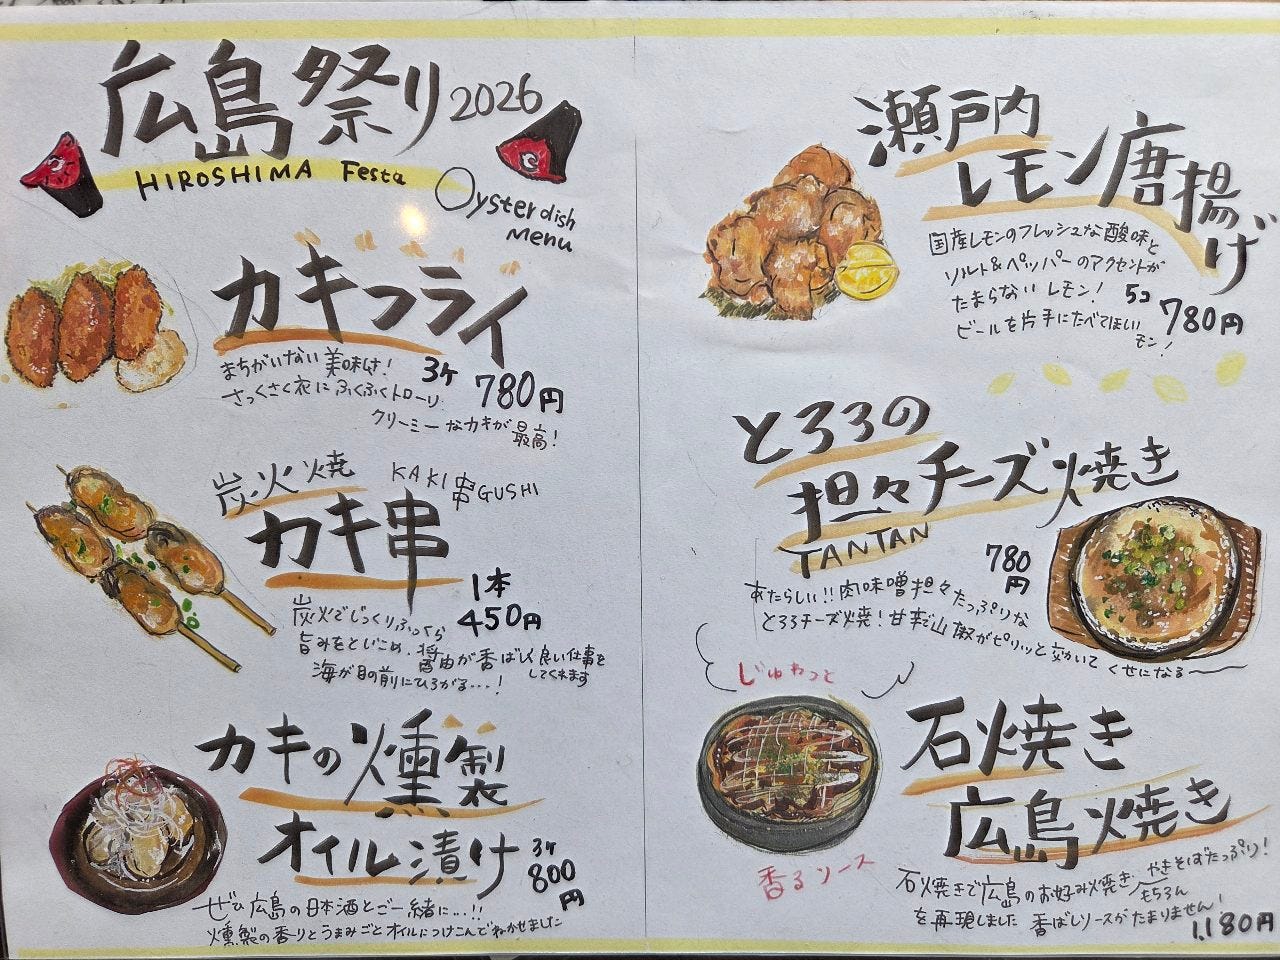 広島祭り2026
HIROSHIMA Festa
Oyster dish
menu
カキフライ
まちがいない美味しさ!
さっくさく衣にふくふくトローリ
クリーミーなカキが最高!
3ケ 780円
炭火焼
KAKI串GUSHI
カキ串
1本
450円
炭火でじっくりふっくら
旨みをとじこめ、醤油が香ばしく良い仕事を
してくれます
海が目の前にひろがる…!
カキの燻製
オイル漬け
3ケ
800
円
ぜひ広島の日本酒とご一緒に…!!
燻製の香りとうまみごとオイルにつけこんでねかせました
瀬戸内
レモン唐揚げ
国産レモンのフレッシュな酸味と
ソルト&ペッパーのアクセントが
たまらないレモン!
ビールを片手にたべてほしい
モン!
5コ 780円
とろろの
担々チーズ焼き
TANTAN
780
円
あたらしい!!肉味噌担々たっぷりな
とろろチーズ焼!甘辛で山椒がピリッと効いてくせになる〜
じゅわっと
香るソース
石焼き
広島焼き
石焼きで広島のお好み焼き
やきそばたっぷり!
もちろん
を再現しました 香ばしソースがたまりません!
1,180円